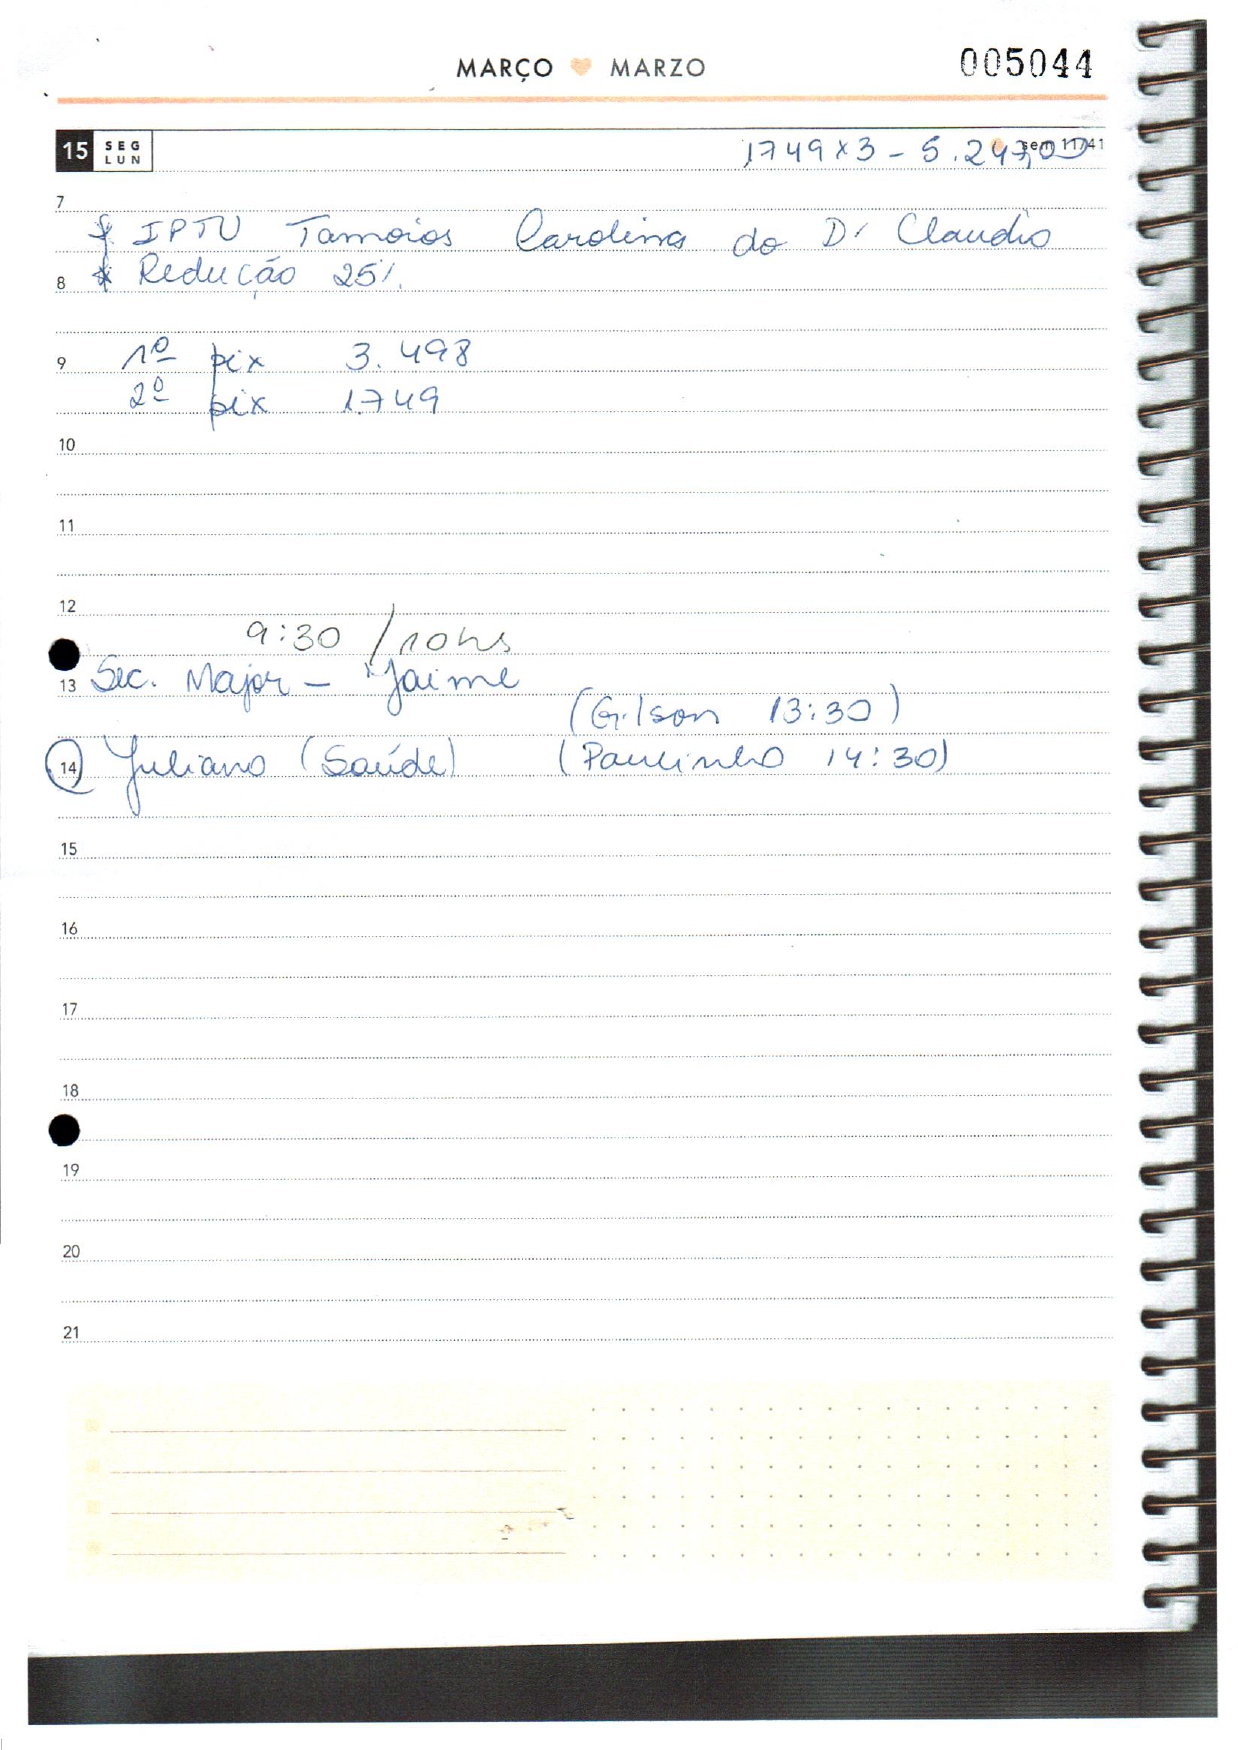 MARÇO MARZO 005044
15 SEG LUN 1749x3 - 5.247,00 sem 11/41
7
* IPTU Tamoios Carolina do Dr Claudio
8 * Redução 25%.
9 1º pix 3.498
2º pix 1.749
10
11
12
9:30 / 10 hs
13 Sec. Major - "Jaime
(Gilson 13:30)
14 Juliano (Saúde) (Paulinho 14:30)
15
16
17
18
19
20
21